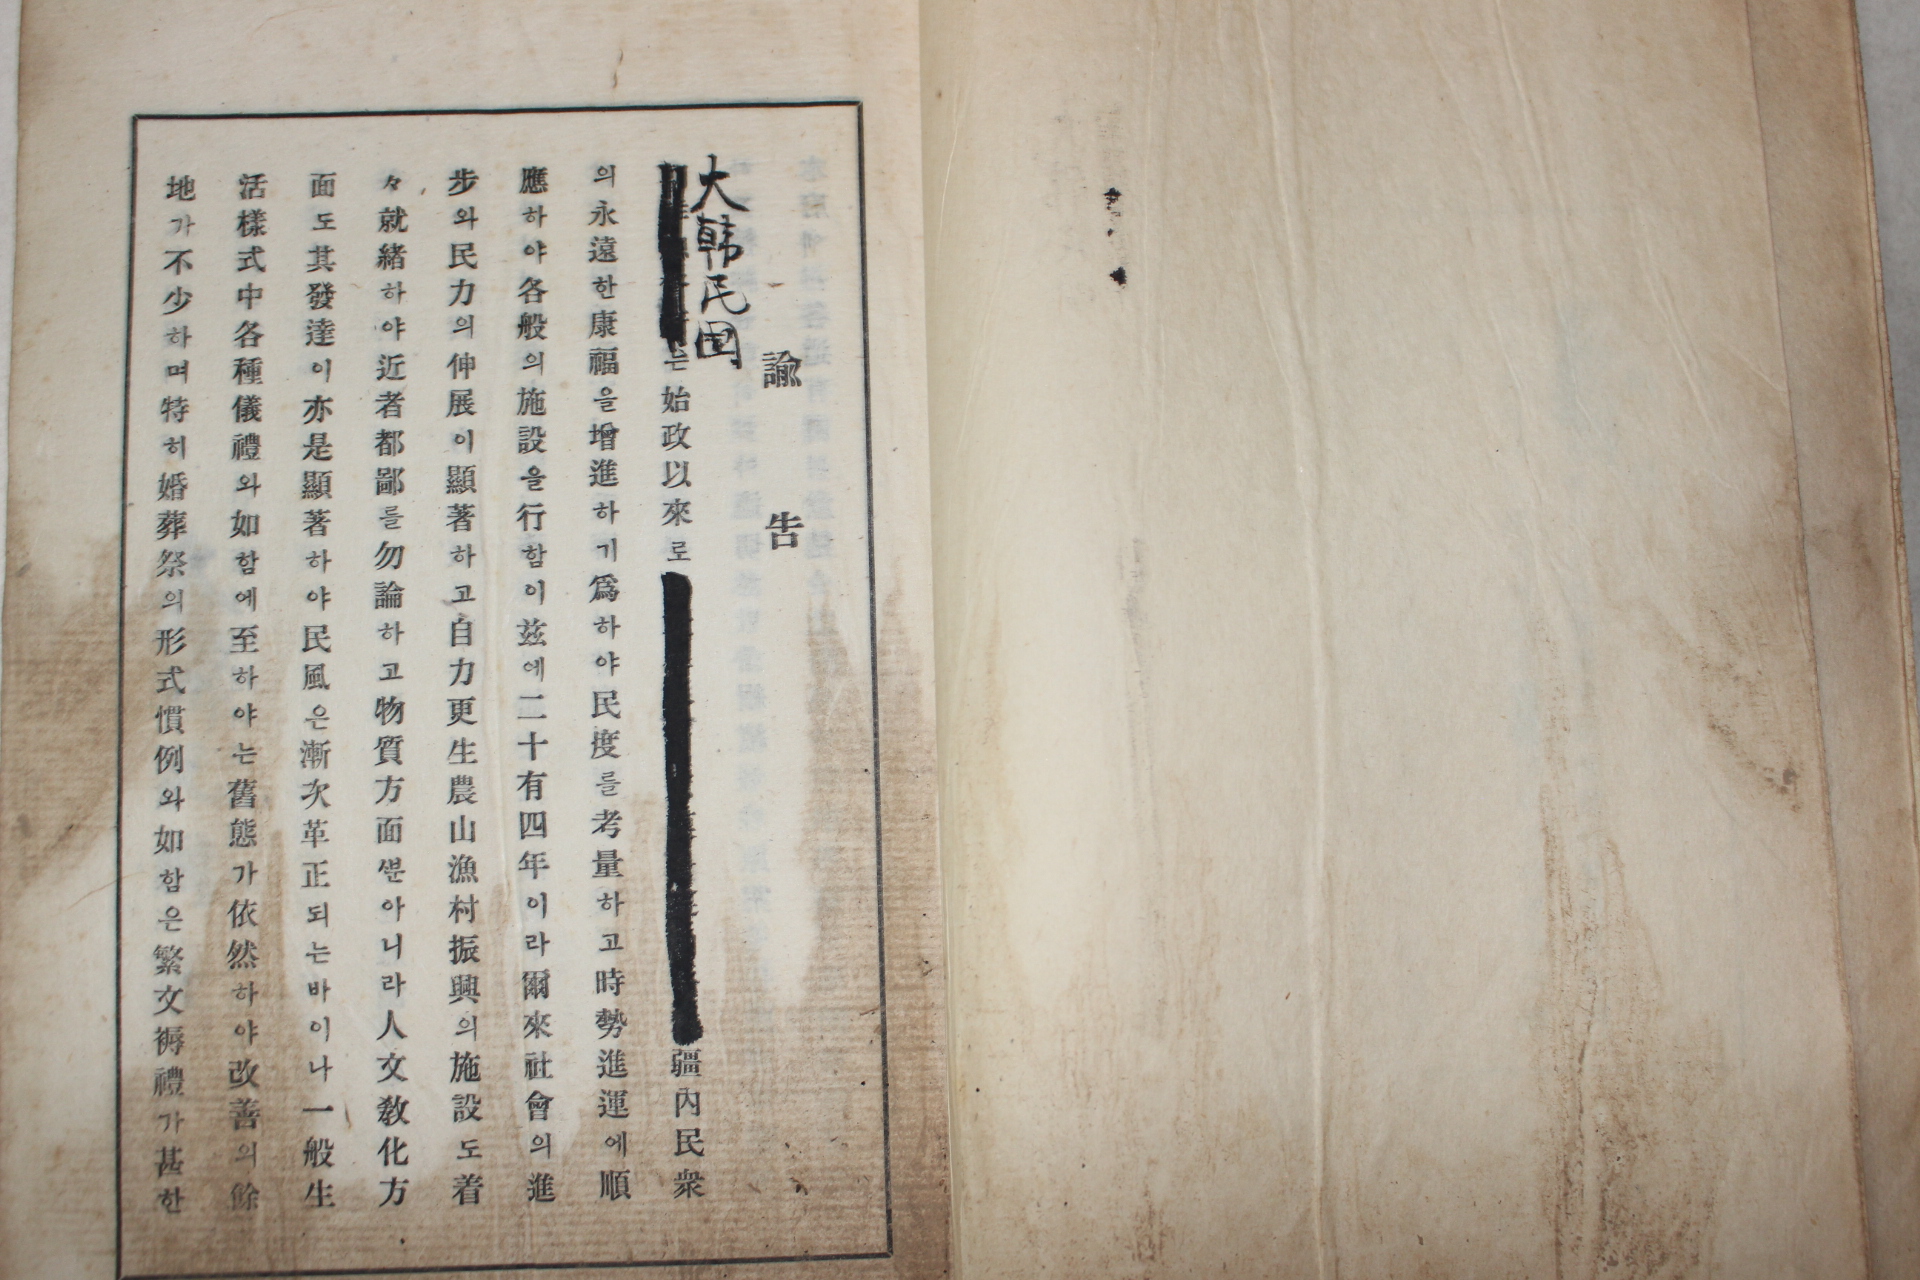 諭告
大韓民国
은始政以來로
疆內民衆
의永遠한康福을增進하기爲하야民度를考量하고時勢進運에順
應하야各般의施設을行함이玆에二十有四年이라爾來社會의進
步와民力의伸展이顯著하고自力更生農山漁村振興의施設도着
々就緖하야近者都鄙를勿論하고物質方面뿐아니라人文敎化方
面도其發達이亦是顯著하야民風은漸次革正되는바이나一般生
活樣式中各種儀禮와如함에至하야는舊態가依然하야改善의餘
地가不少하며特히婚葬祭의形式慣例와如함은繁文褥禮가甚한